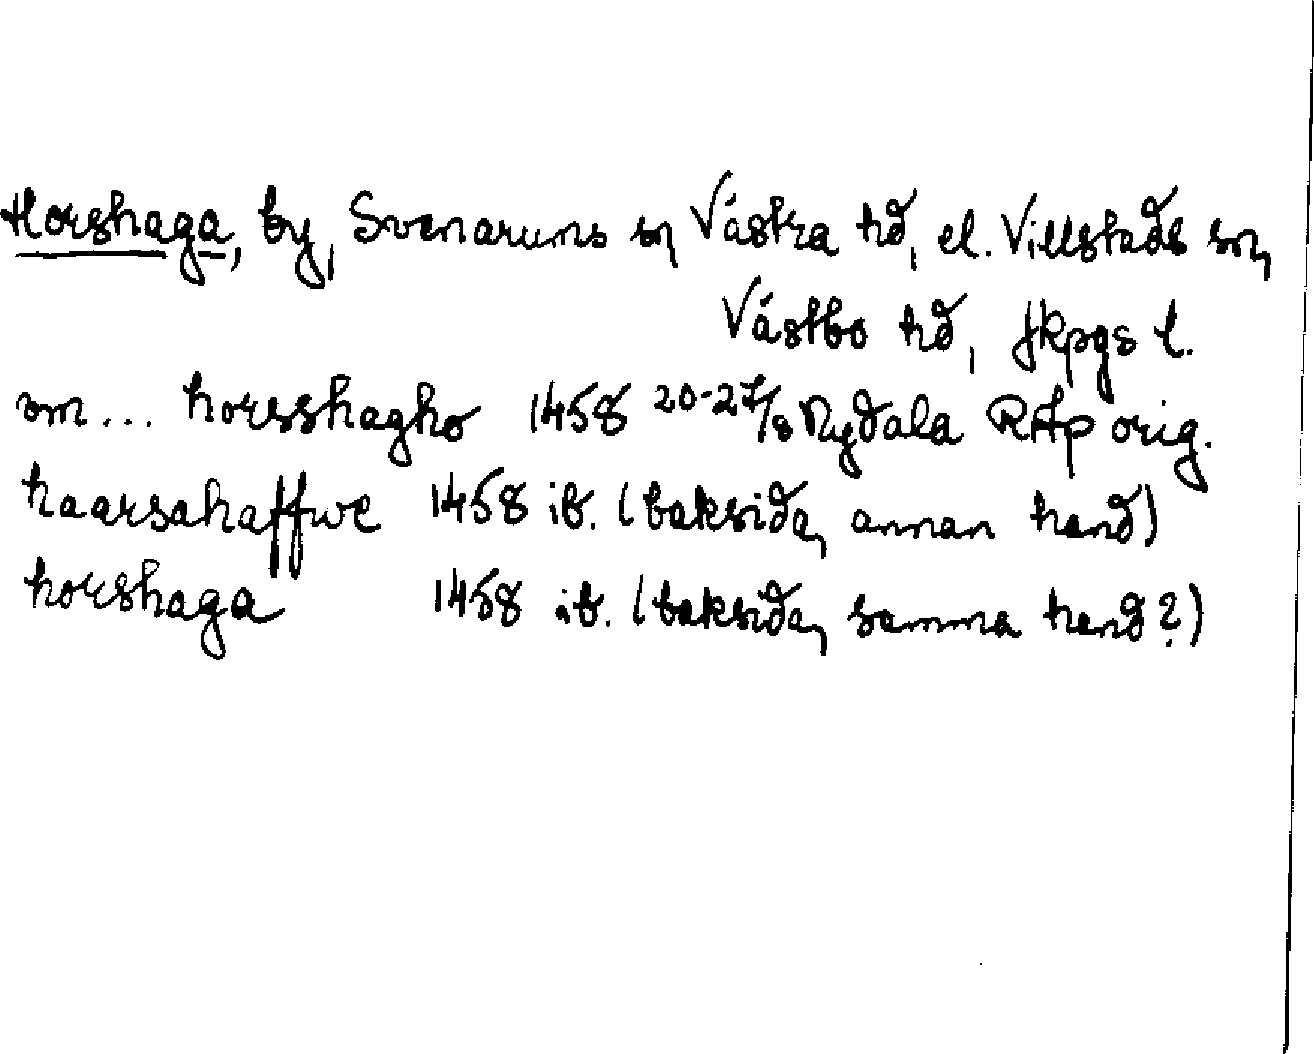 Horshaga, by, Svenarums sn Västra hd, el. Villstads sn,
Västbo hd, Jkpgs l.
om... horsshagho 1458 20-27/8 Nydala RAp orig.
haarsahaffwe 1458 ib. (baksida, annan hand)
horshaga 1458 ib. (baksida, samma hand?)